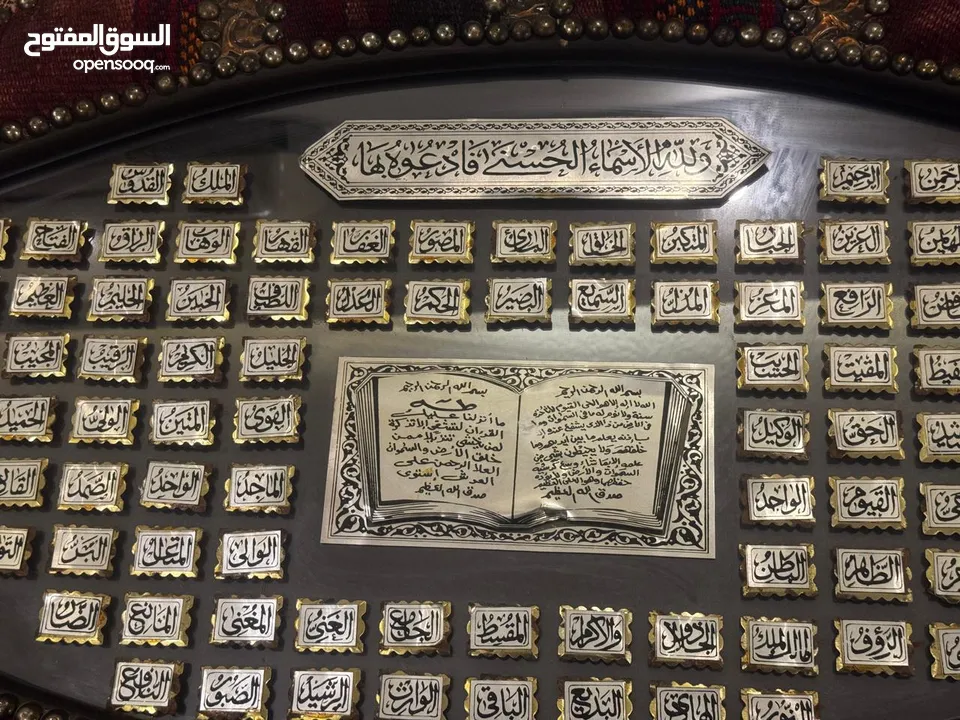 السوق المفتوح
opensooq.com
ولله الأسماء الحسنى فادعوه بها
الرحيم الملك القدوس
العزيز الجبار المتكبر الخالق البارئ المصور الغفار القهار الوهاب الرزاق الفتاح
الرافع المعز المذل السميع البصير الحكم العدل اللطيف الخبير الحليم العظيم
المقيت الحسيب الجليل الكريم الرقيب المجيب
الحق الوكيل القوي المتين الولي الحميد
القيوم الواجد الماجد الواحد الصمد
الظاهر الباطن الوالي المتعالي البر
الرؤف مالك الملك ذوالجلال والاكرام المقسط الجامع الغني المغني المانع الضار
النور الهادي البديع الباقي الوارث الرشيد الصبور النافع
بسم الله الرحمن الرحيم
الله لا اله الا هو الحي القيوم لا تأخذه
سنة ولا نوم له ما في السموات وما
في الارض من ذا الذي يشفع عنده إلا
باذنه يعلم ما بين ايديهم وما
خلفهم ولا يحيطون بشيء من
علمه الا بما شاء وسع كرسيه
السموات والارض ولا يؤده
حفظهما وهو العلي العظيم
صدق الله العظيم
بسم الله الرحمن الرحيم
طه
ما أنزلنا عليك
القرآن لتشقى إلا تذكرة
لمن يخشى تنزيلا ممن
خلق الارض والسموات
العلا الرحمن على
العرش استوى
صدق الله العظيم